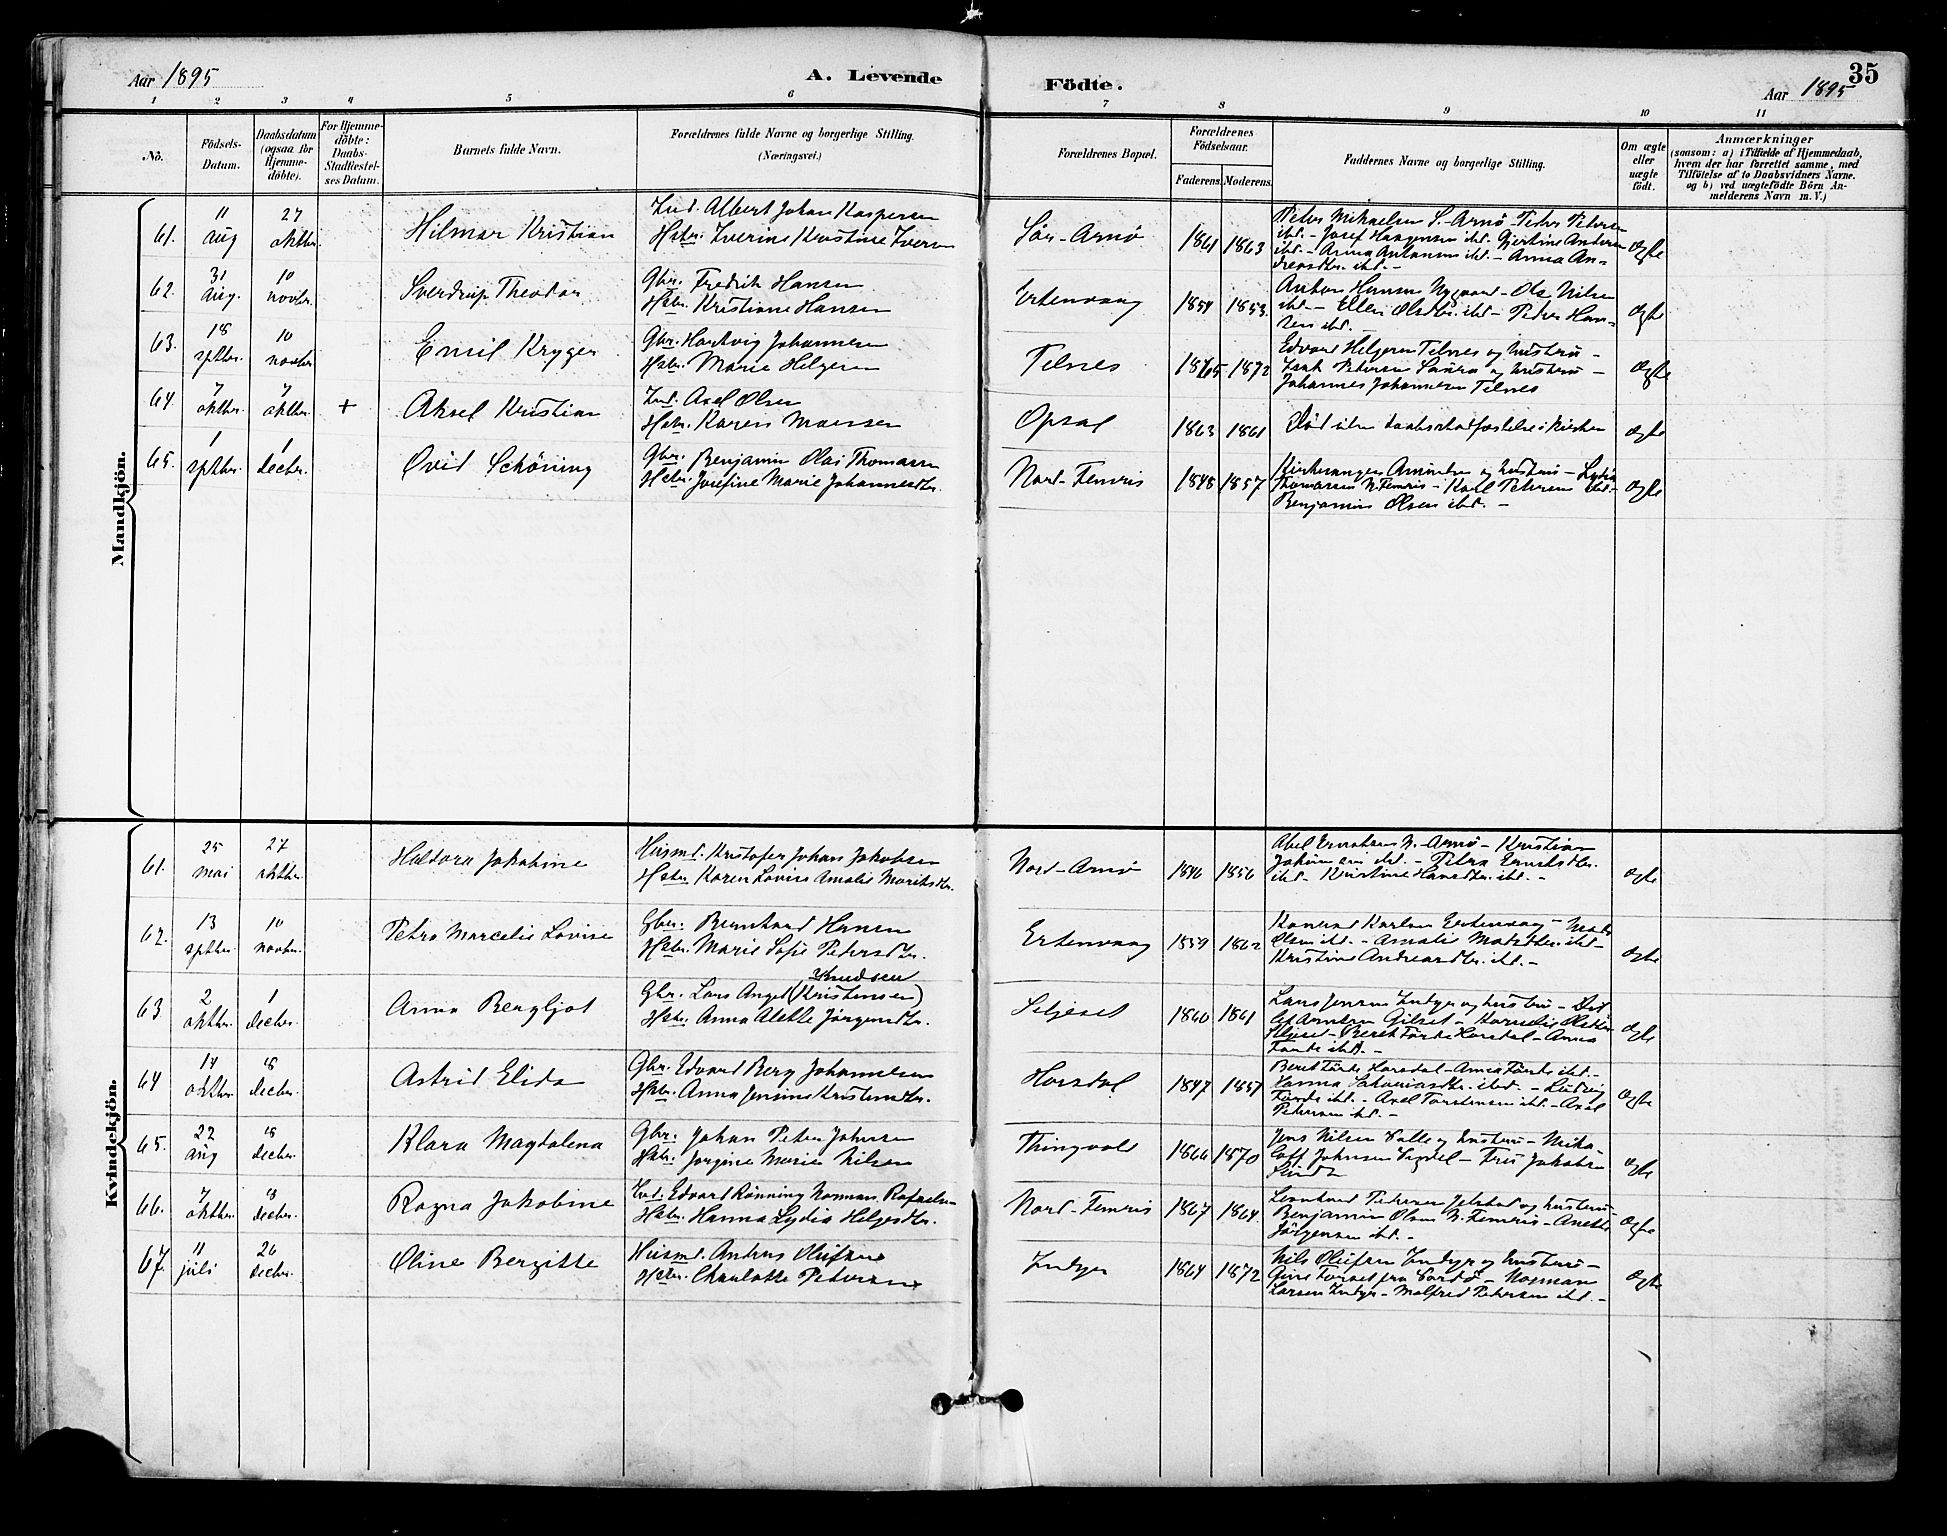 Aar 1895
A. Levende
Födte.
35
Aar 1895
1 2 3 4 5 6 7 8 9 10 11
No.
Födsels-
Datum.
Daabsdatum
(ogsaa for
Hjemme-
döbte).
For Hjemme-
döbte:
Daabs-
Stadfæstel-
ses Datum.
Barnets fulde Navn.
Forældrenes fulde Navne og borgerlige Stilling.
(Næringsvei.)
Forældrenes Bopæl.
Forældrenes
Födselsaar.
Faderens. Moderens.
Faddernes Navne og borgerlige Stilling.
Om ægte
eller
uægte
födt.
Anmærkninger
(saasom: a) i Tilfælde af Hjemmedaab,
hvem der har forrettet samme, med
Tilföielse af to Daabsvidners Navne.
og b) ved uægtefödte Börn An-
melderens Navn m. V.)
Mandkjön.
61.
11
aug
27
oktbr.
Hilmar Kristian
Ind. Albert Johan Kaspersen
Hstr. Iverine Kristine Ivers
Sör-Arnö
1861 1863
Peter Mikaelsen S.-Arnö - Peter Petersen
ibd. - Josef Haagensen ibd. Gjertine Andersen
ibd. - Anna Antonsen ibd. - Anna An-
dreasdtr. ibd. -
ægte
62.
31
aug.
10
novbr.
Sverdrup Theodor
Gbr. Fredrik Hansen
Hstr. Kristiane Hansen
Ertenvaag
1854 1853.
Anton Hansen Nygaard - Ole Nilsen
ibd. - Ellen Olsdtr. ibd. - Peder Han-
sen ibd. -
ægte
63.
18
sptbr.
10
novbr.
Emil Kryger
Gbr. Hartvig Johannesen
Hstr. Marie Helgesen
Telnes
1865 1872
Edvard Helgesen Telnes og hustru -
Isak Petersen og hustru -
Johannes Johannesen Telnes
ægte
64.
7
oktbr.
7
oktbr.
+
Aksel Kristian
Ind. Axel Olsen
Hstr. Karen Monsen
Opsal
1863 1861
Död uden daabsstadfæstelse i kirken
ægte
65.
1
sptbr.
1
decbr.
Ovid Schöning
Gbr. Benjamin Olai Thomassen
Hstr. Josefine Marie Johannesdtr.
Nord-Femris
1848 1857
Kirkesanger og hustru - Lydia
Thomassen N. Femris - Karl Petersen ibd. -
Benjamin Olsen ibd. -
ægte
Kvindekjön.
61.
25
mai
27
oktbr.
Haldora Jakobine
Husmd. Kristofer Johan Jakobsen
Hstr. Karen Lovise Amalie Moriksdtr.
Nord-Arnö
1846 1856
Abel Erntsen N. Arnö - Kristian
ibd. - Petra Erntsdtr.
ibd. - Kristine Hansdtr. ibd. -
ægte
62.
13
sptbr.
10
novbr.
Petra Marcelie Lovise
Gbr. Bernhard Hansen
Hstr. Marie Sofie Pedersdtr.
Ertenvaag
1859 1862
Konrad Karlsen Ertenvaag - Mads
Olsen ibd. - Amalie Madsdtr. ibd. -
Kristine Andreasdtr. ibd. -
ægte
63
2
oktbr.
1
decbr.
Anna Bergljot
Knudsen
Gbr. Lars Angel (Kristensen)
Hstr. Anna Alette Jörgensdtr.
Seljeset
1860 1861
Lars Jensen Indyr og hustru -
Arntsen Gilset - Kornelie Olsdtr.
Seljeset - Beret Förde Horsdal - Anna
Förde ibd. -
ægte
64
14
oktbr.
18
decbr.
Astrid Elida
Gbr. Edvard Berg Johannesen
Hstr. Anna Jensine Kristensdtr.
Horsdal
1847 1857
Beret Förde Horsdal - Anna Förde ibd. -
Hanna Sakariasdtr. ibd. - Ludvig
Förde ibd. - Axel Torstensen ibd. - Axel
Petersen ibd. -
ægte
65.
22
aug
18
decbr.
Klara Magdalena
Gbr. Johan Peter Johnsen
Hstr. Jorgine Marie Nilsen
Thingvold
1866 1870
Jens Nilsen Valle og hustru - Mika-
Johnsen - Jakobsen
ægte
66.
7
oktbr.
18
decbr.
Ragna Jakobine
Ind. Edvard Rönning Norman Rafaelsen
Hstr. Hanna Lydia Helgesdtr.
Nord-Femris
1867 1864.
Leonhard Pedersen Jelstad og hustru -
Benjamin Olsen N. Femris - Anette
Jörgensen ibd. -
ægte
67.
11
juli
26
decbr.
Oline Bergitte
Husmd. Andreas Olufsen
Hstr. Charlotte Petersen
Indyr
1864 1872
Nils Olufsen Indyr og hustru -
fra Vardö - Norman
Larsen Indyr - Malfred Petersen ibd. -
ægte